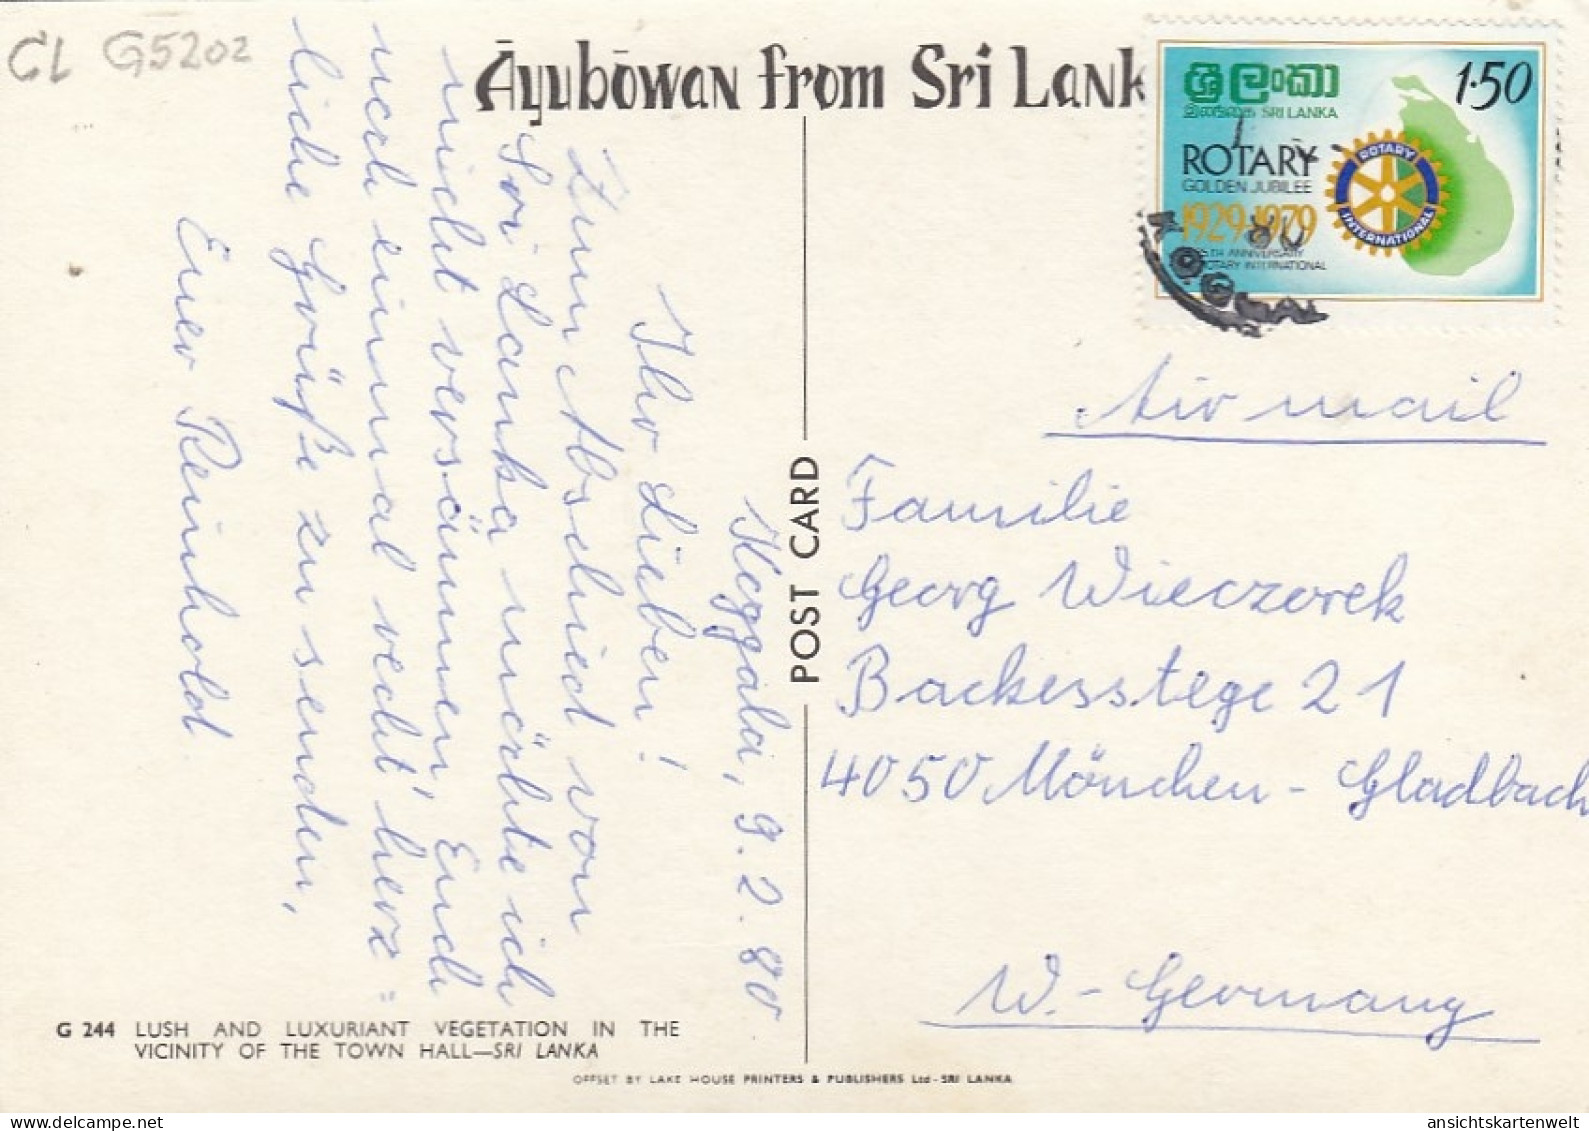 CL G5202
Āyubōwan from Sri Lank
ශ්‍රී ලංකා
இலங்கை SRI LANKA
1.50
ROTARY
GOLDEN JUBILEE
1929-1979
75TH ANNIVERSARY
ROTARY INTERNATIONAL
ROTARY
INTERNATIONAL
80
KOGGALA
Koggala, 9.2.80
Ihr Lieben!
Zum Abschied von
Sri Lanka möchte ich
nicht versäumen, Euch
noch einmal recht herz=
liche Grüße zu senden,
Euer Reinhold
POST CARD
Air mail
Familie
Georg Wieczorek
Backesstege 21
4050 Mönchen-Gladbach
W.-Germany
G 244 LUSH AND LUXURIANT VEGETATION IN THE
VICINITY OF THE TOWN HALL—SRI LANKA
OFFSET BY LAKE HOUSE PRINTERS & PUBLISHERS Ltd - SRI LANKA
ansichtskartenwelt